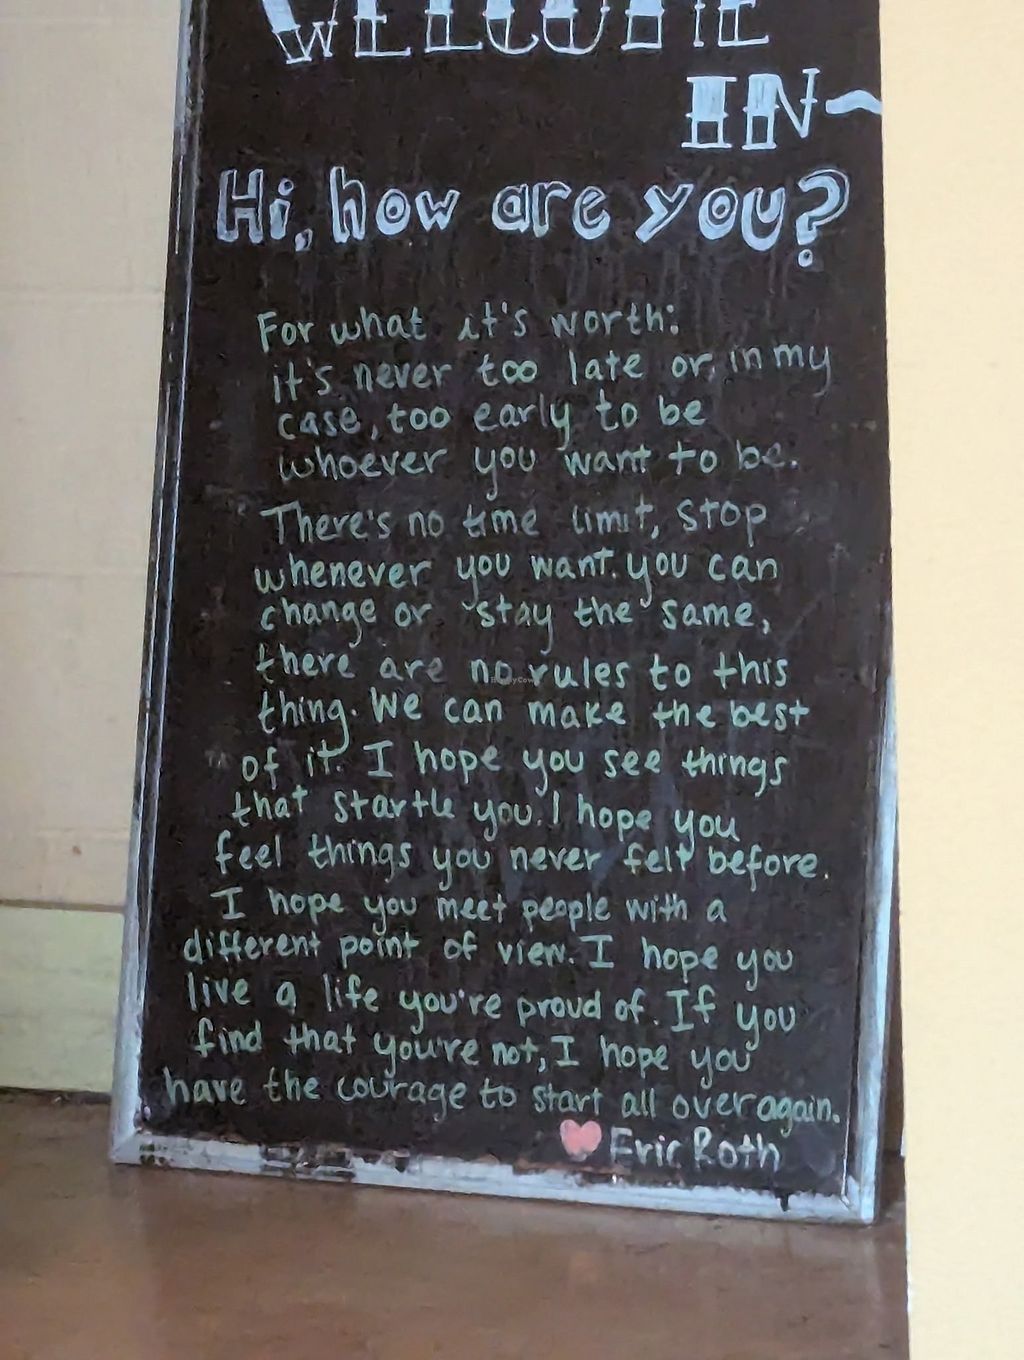 WELCOME
IN~
Hi, how are you?
For what it's worth:
it's never too late or, in my
case, too early to be
whoever you want to be.
There's no time limit, stop
whenever you want. you can
change or stay the same,
there are no rules to this
thing. We can make the best
of it. I hope you see things
that startle you. I hope you
feel things you never felt before.
I hope you meet people with a
different point of view. I hope you
live a life you're proud of. If you
find that you're not, I hope you
have the courage to start all over again.
Eric Roth
HappyCow